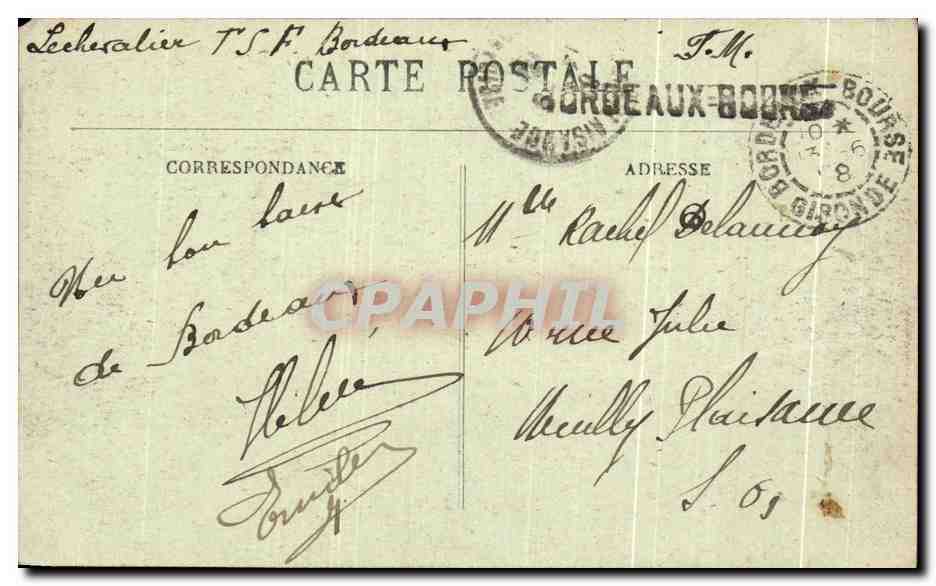 Lechevalier T S.F. Bordeaux F.M.
CARTE POSTALE
BORDEAUX=BOURSE
BORDEAUX - BOURSE
* 6
8
GIRONDE
CORRESPONDANCE
ADRESSE
Un bon baiser
de Bordeaux
Hélène
Mlle Rachel Delaunay
rue Julie
Neuilly Plaisance
S. Oise
CPAPHIL